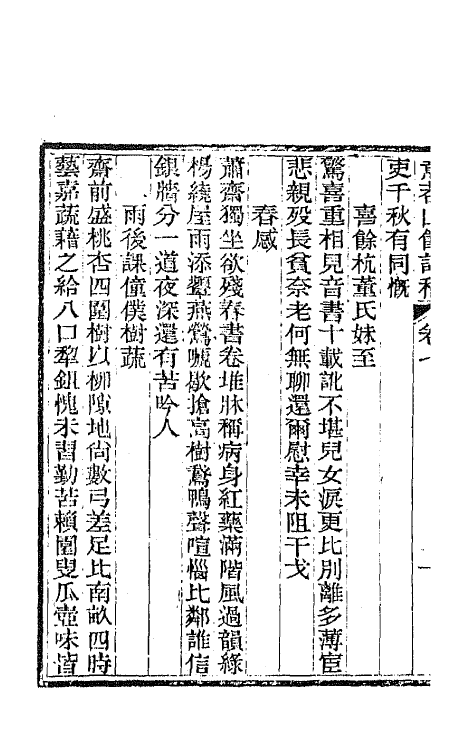 吏千秋有同慨
喜餘杭董氏妹至
驚喜重相見音書十載訛不堪兒女淚更比別離多薄宦
悲親殁長貧奈老何無聊還爾慰幸未阻干戈
春感
蕭齋獨坐欲殘春書卷堆牀稱病身紅藥滿階風過韻綠
楊繞屋雨添顰燕鶯號歇搶高樹鵞鴨聲喧惱比鄰誰信
銀牆分一道夜深還有苦吟人
雨後課僮僕樹蔬
齋前盛桃杏四圍樹以柳隙地尙數弓差足比南畝四時
藝嘉蔬藉之給八口犂鉏愧未習勤苦賴園叟瓜壺味清